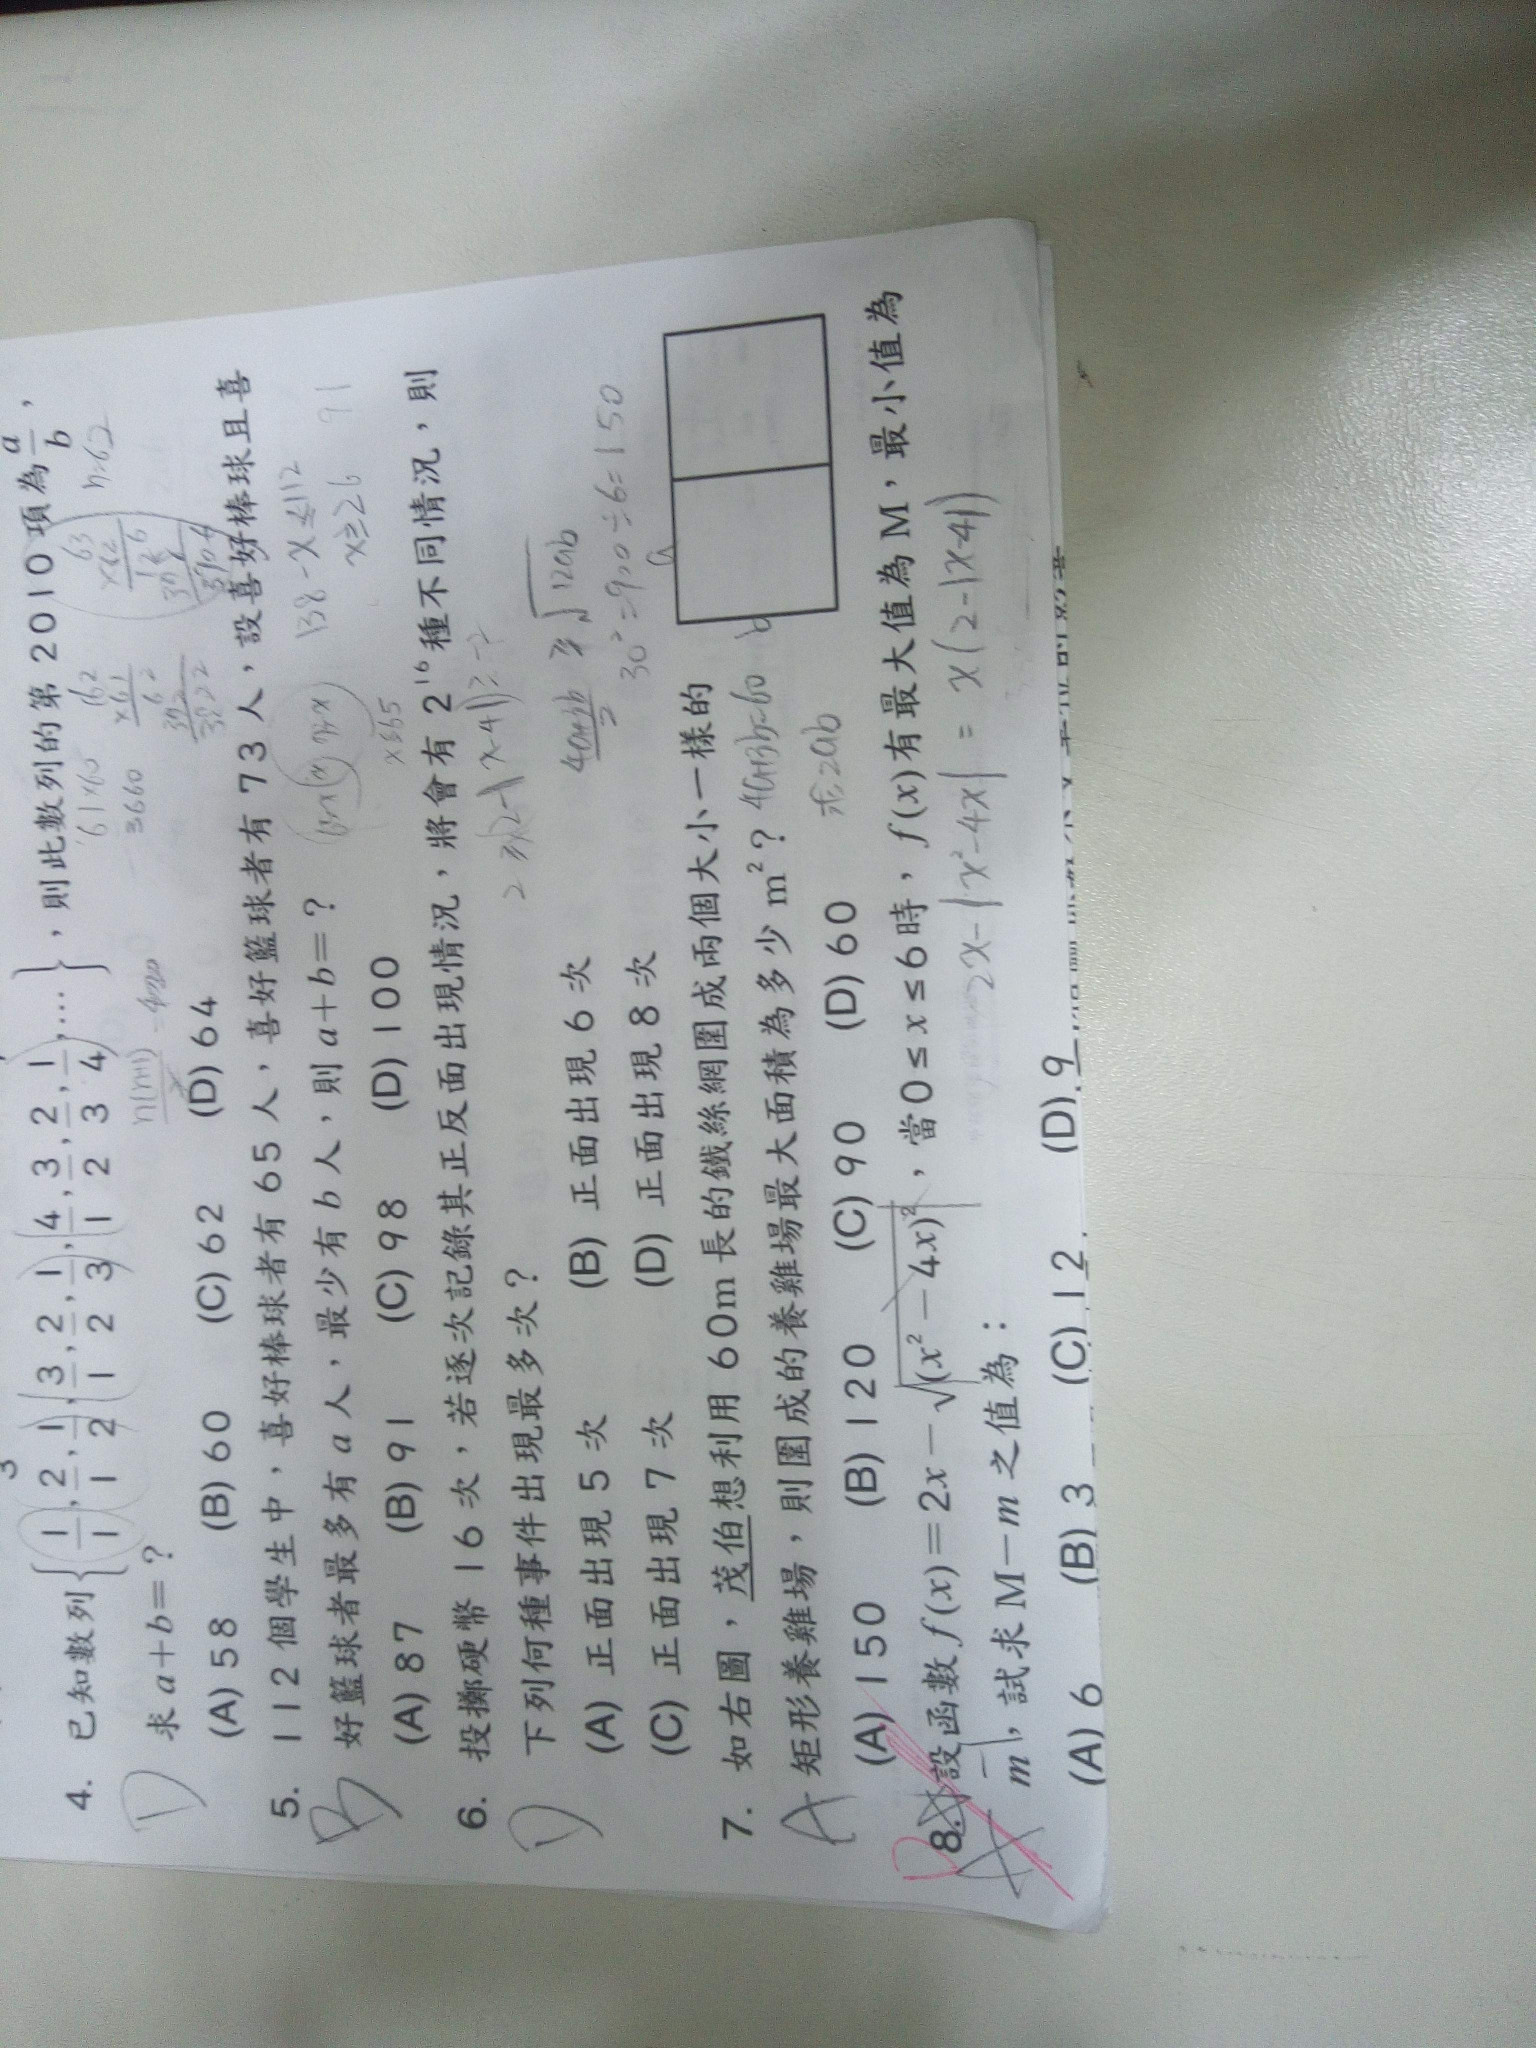 4. 已知數列{1/1, 2/1, 1/2, 3/1, 2/2, 1/3, 4/1, 3/2, 2/3, 1/4, …}，則此數列的第 2010 項為 a/b，
求 a+b=？
D
n(n+1)/2
61×60
3660
n=62
(A) 58 (B) 60 (C) 62 (D) 64
5. 112 個學生中，喜好棒球者有 65 人，喜好籃球者有 73 人，設喜好棒球且喜
好籃球者最多有 a 人，最少有 b 人，則 a+b=？
B
138-x≤112
x≥26 91
x≤65
(A) 87 (B) 91 (C) 98 (D) 100
6. 投擲硬幣 16 次，若逐次記錄其正反面出現情況，將會有 2^16 種不同情況，則
下列何種事件出現最多次？
D
(A) 正面出現 5 次 (B) 正面出現 6 次
(C) 正面出現 7 次 (D) 正面出現 8 次
(4a+3b)/2 ≥ √12ab
30²=900÷6=150
7. 如右圖，茂伯想利用 60m 長的鐵絲網圍成兩個大小一樣的
矩形養雞場，則圍成的養雞場最大面積為多少 m²？
A
4a+3b=60
求2ab
a
b
(A) 150 (B) 120 (C) 90 (D) 60
8. 設函數 f(x)=2x-√(x²-4x)²，當 0≤x≤6 時，f(x)有最大值為 M，最小值為
m，試求 M-m 之值為：
D
A
2x-|x²-4x| = x(2-|x-4|)
(A) 6 (B) 3 (C) 12 (D) 9